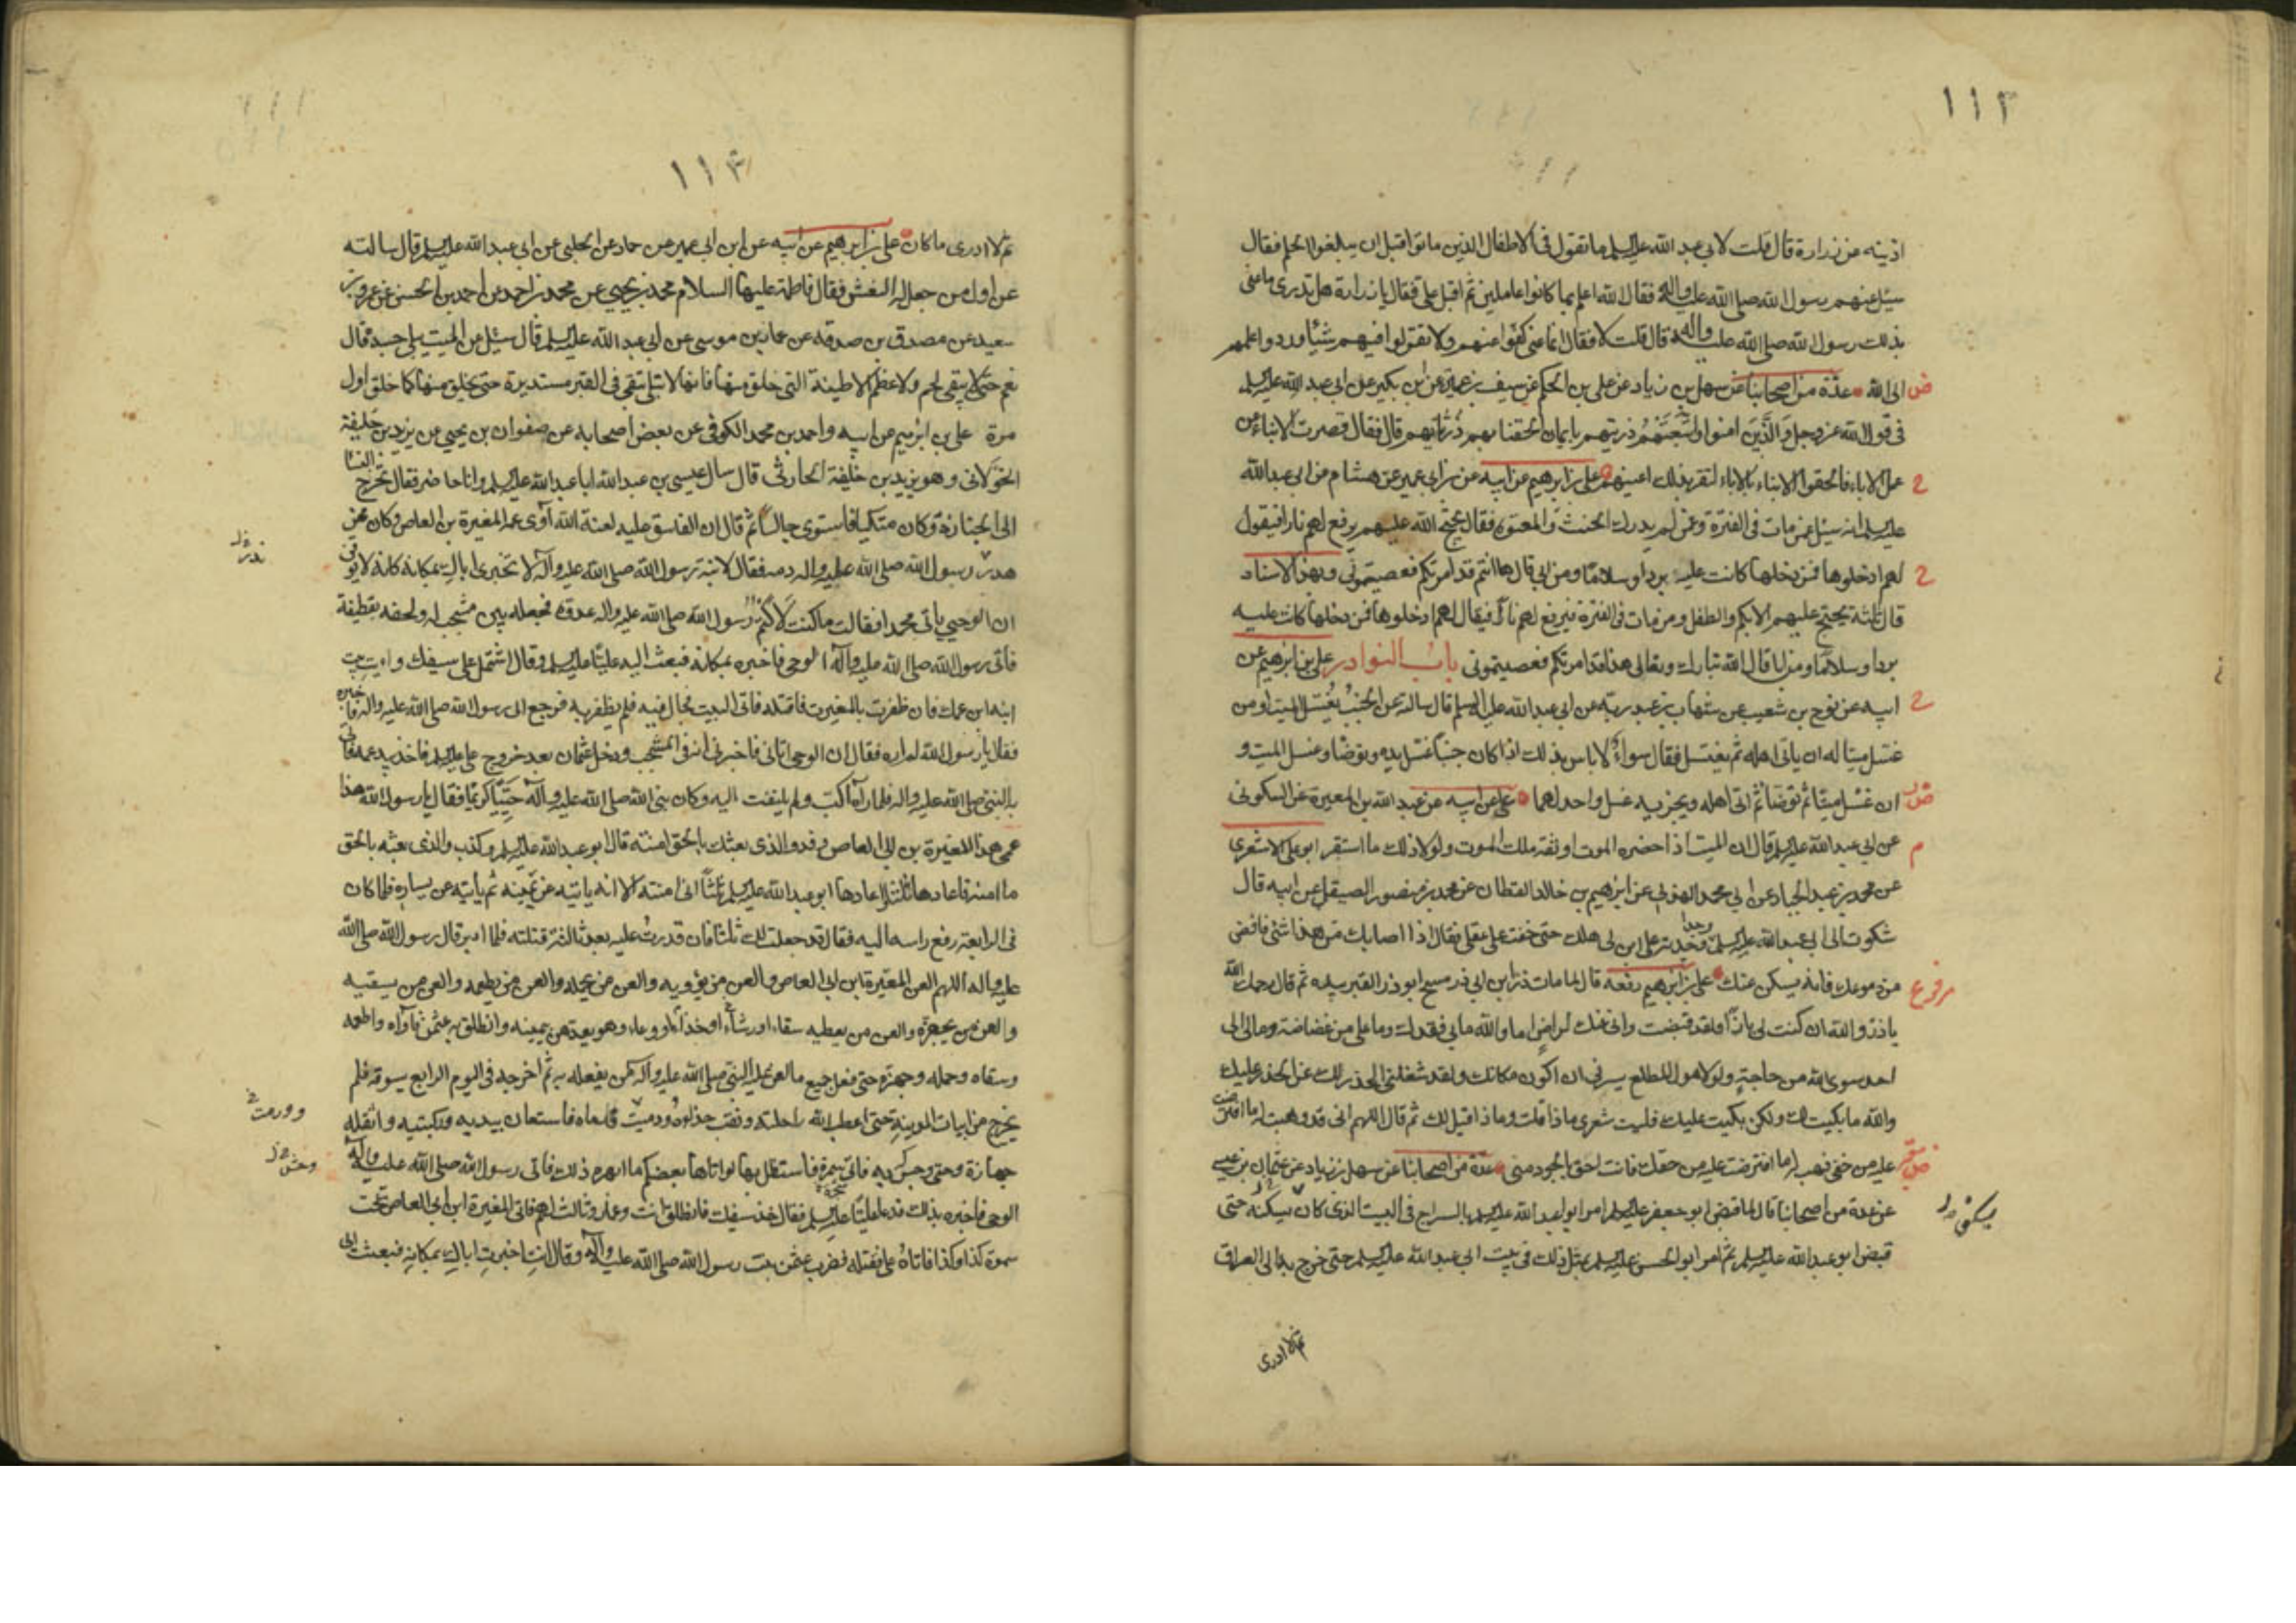 ١١٢
اذينه عن زرارة قال قلت لابي عبد الله عليه السلم ما تقول في الاطفال الذين ماتوا قبل ان يبلغوا الحلم فقال
سئل عنهم رسول الله صلى الله عليه واله فقال الله اعلم بما كانوا عاملين ثم اقبل على فقال يا زرارة هل تدرى ما عنى
بذلك رسول الله صلى الله عليه واله قال قلت لا فقال انما عنى كفوا عنهم ولا تقولوا فيهم شيئا وردوا علمهم
ض الى الله عدة من اصحابنا عن سهل بن زياد عن على بن الحكم عن سيف بن عميرة عن ابن بكير عن ابى عبد الله عليه السلم
فى قول الله عز وجل والذين امنوا واتبعتهم ذريتهم بايمان الحقنا بهم ذرياتهم قال فقال قصرت الابناء عن
ح عمل الاباء فالحقوا الابناء بالاباء لتقر بذلك اعينهم على بن ابرهيم عن ابيه عن بن ابى عمير عن هشام عن ابى عبد الله
عليه السلم انه سئل عمن مات فى الفترة وعمن لم يدرك الحنث والمعتوه فقال يحتج الله عليهم يرفع لهم نارا فيقول
ح لهم ادخلوها فمن دخلها كانت عليه بردا وسلاما ومن ابى قال ها انتم قد امرتكم فعصيتمونى وبهذا الاسناد
قال ثلثة يحتج عليهم الابكم والطفل ومن مات فى الفترة فيرفع لهم نار فيقال لهم ادخلوها فمن دخلها كانت عليه
بردا وسلاما ومن ابا قال الله تبارك وتعالى هذا قد امرتكم فعصيتمونى باب النوادر على بن ابرهيم عن
ح ابيه عن نوح بن شعيب عن شهاب بن عبد ربه عن ابى عبد الله عليه السلم قال سالته عن الجنب يغسل الميت او من
غسل ميتا له ان ياتى اهله ثم يغتسل فقال سواء لا باس بذلك اذا كان جنبا غسل يده وتوضا وغسل الميت و
ان غسل ميتا ثم توضا ثم اتى اهله ويجزيه غسل واحد لهما على عن ابيه عن عبد الله بن المغيرة عن السكونى
م عن ابى عبد الله عليه السلم قال ان الميت اذا حضره الموت اوثقه ملك الموت ولولا ذلك ما استقر ابو على الاشعرى
عن محمد بن عبد الجبار عن ابى محمد الهذلى عن ابرهيم بن خالد القطان عن محمد بن منصور الصيقل عن ابيه قال
شكوت الى ابى عبد الله عليه السلم وجدا وجدته على ابن لى هلك حتى خفت على عقلى فقال اذا اصابك من هذا شئ فافض
مرفوع من دموعك فانه يسكن عنك على بن ابرهيم رفعه قال لما مات ذر ابن ابى ذر مسح ابو ذر القبر بيده ثم قال رحمك الله
يا ذر والله ان كنت لى بارا ولقد قبضت وانى عنك لراض اما والله ما بى فقدك وما على من غضاضة ومالى الى
احد سوى الله من حاجة ولولا هول المطلع يسرنى ان اكون مكانك ولقد شغلنى الحذر لك عن الحذر عليك
والله ما بكيت لك ولكن بكيت عليك فليت شعرى ماذا قلت وماذا قيل لك ثم قال اللهم انى قد وهبت له ما افترضت
عليه من حقى فهب له ما افترضت عليه من حقك فانت احق بالجود منى عدة من اصحابنا عن سهل بن زياد عن عثمان بن عيسى
عن عدة من اصحابنا قال لما قبض ابو جعفر عليه السلم امر ابو عبد الله عليه السلم بالسراج فى البيت الذى كان يسكنه حتى
قبض ابو عبد الله عليه السلم ثم امر ابو الحسن عليه السلم بمثل ذلك فى بيت ابى عبد الله عليه السلم حتى خرج به الى العراق
ثم لا ادرى
١١٣
ثم لا ادرى ما كان على بن ابرهيم عن ابيه عن ابن ابى عمير عن حماد عن الحلبى عن ابى عبد الله عليه السلم قال سالته
عن اول من جعل له النعش فقال فاطمة عليها السلام محمد بن يحيى عن محمد بن احمد بن احمد بن الحسن عن عمرو بن
سعيد عن مصدق بن صدقه عن عمار بن موسى عن ابى عبد الله عليه السلم قال سئل عن الميت يبلى جسده قال
نعم حتى لا يبقى لحم ولا عظم الا طينة التى خلق منها فانها لا تبلى تبقى فى القبر مستديرة حتى يخلق منها كما خلق اول
مرة على بن ابرهيم عن ابيه واحمد بن محمد الكوفى عن بعض اصحابه عن صفوان بن يحيى عن يزيد بن خليفة
الخولانى وهو يزيد بن خليفة الحارثى قال سال عيسى بن عبد الله ابا عبد الله عليه السلم وانا حاضر فقال تخرج النسا
الى الجنازة وكان متكيا فاستوى جالسا ثم قال ان الفاسق عليه لعنة الله آوى عمه المغيرة بن العاص وكان ممن
هدر رسول الله صلى الله عليه واله دمه فقال لابنة رسول الله صلى الله عليه وآله لا تخبرى اباك بمكانه كانه لا يوقن
ان الوحى ياتى محمدا فقالت ما كنت لاكتم رسول الله صلى الله عليه واله عدوه فجعله بين مشجب له ولحفه بقطيفة
فاتى رسول الله صلى الله عليه وآله الوحى فاخبره بمكانه فبعث اليه عليا عليه السلم وقال اشتمل على سيفك وايت بيت
ابنه ابن عمك فان ظفرت بالمغيرة فاقتله فاتى البيت فجال فيه فلم يظفر به فرجع الى رسول الله صلى الله عليه واله فاخبره
فقال يا رسول الله لم اره فقال ان الوحى اتانى فاخبرنى انه فى المشجب ودخل عثمان بعد خروج على عليه السلم فاخذ بيد عمه فاتى
به النبى صلى الله عليه واله فلما رآه اكب ولم يلتفت اليه وكان نبى الله صلى الله عليه وآله حييا كريما فقال يا رسول الله هذا
عمى هذا المغيرة بن ابى العاص وفد والذى بعثك بالحق امنته قال ابو عبد الله عليه السلم وكذب والذى بعثه بالحق
ما امنه فاعادها ثلثا واعادها ابو عبد الله عليه السلم ثلثا انى امنته الا انه ياتيه عن يمينه ثم ياتيه عن يساره فلما كان
فى الرابعة رفع راسه اليه فقال قد جعلت لك ثلثا فان قدرت عليه بعد ثالثة قتلته فلما ادبر قال رسول الله صلى الله
عليه واله اللهم العن المغيرة ابن ابى العاص والعن من يؤويه والعن من يحمله والعن من يطعمه والعن من يسقيه
والعن من يجهزه والعن من يعطيه سقاء او رشاء او حذاء او وعاء وهو يعدهن بيمينه وانطلق به عثمن فآواه واطعمه
وسقاه وحمله وجهزه حتى فعل جميع ما لعن عليه النبى صلى الله عليه وآله من يفعله به ثم اخرجه فى اليوم الرابع يسوقه فلم
يخرج من ابيات المدينة حتى اعطب الله راحلته ونقب حذاوه ودميت قدماه فاستعان بيديه وركبتيه واثقله
جهازه حتى وجس به فاتى سمرة فاستظل بها لو اتاها بعضكم ما ابهره ذلك فاتى رسول الله صلى الله عليه وآله
الوحى فاخبره بذلك فدعا عليا عليه السلم فقال خذ سيفك فانطلق انت وعمار وثالث لهم فاتى المغيرة ابن ابى العاص تحت
سمرة كذا وكذا فاتاه على فقتله فضرب عثمن بنت رسول الله صلى الله عليه وآله وقال انت اخبرت اباك بمكانه فبعثت الى